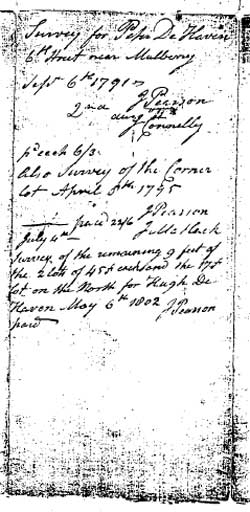 Survey for Peter De Haven
6th Street near Mulberry
Sept 6th 1791
2nd J Pearson
day J Connelly
pd each 6/3
Also Survey of the Corner
lot April 8th 1795
paid 22/6 J Pearson
July 4th J Matlack
Survey of the remaining 9 feet of
the 2 lotts of 45 f each and the 17 f
lot on the North for Hugh De
Haven May 6th 1802 J Pearson
paid